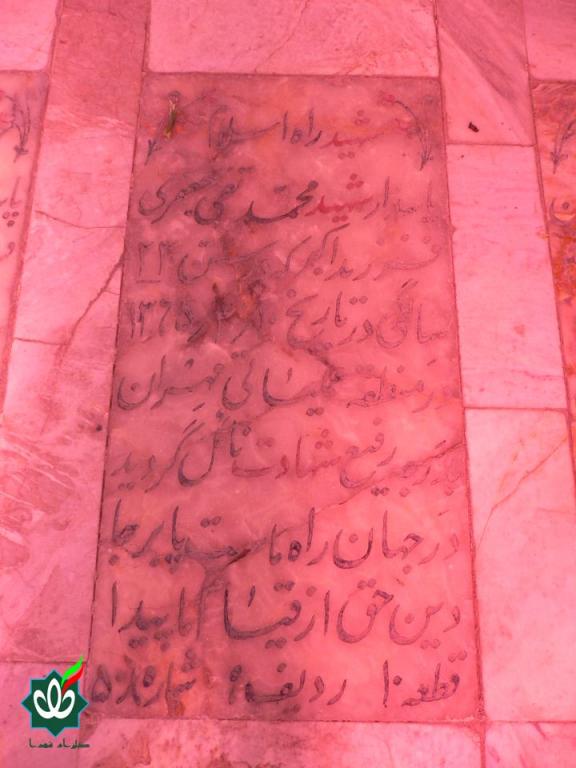 شهید راه اسلام
پاسدار شهید محمد تقی جعفری
فرزند اکبر که در سن ۲۳
سالگی در تاریخ ۱۳۶۵
در منطقه عملیاتی مهران
بدرجه رفیع شهادت نائل گردید
در جهان راه ماست پا برجا
دین حق از قیام ما پیدا
قطعه ۱۰ ردیف ۹ شماره ۵
گلزار شهدا